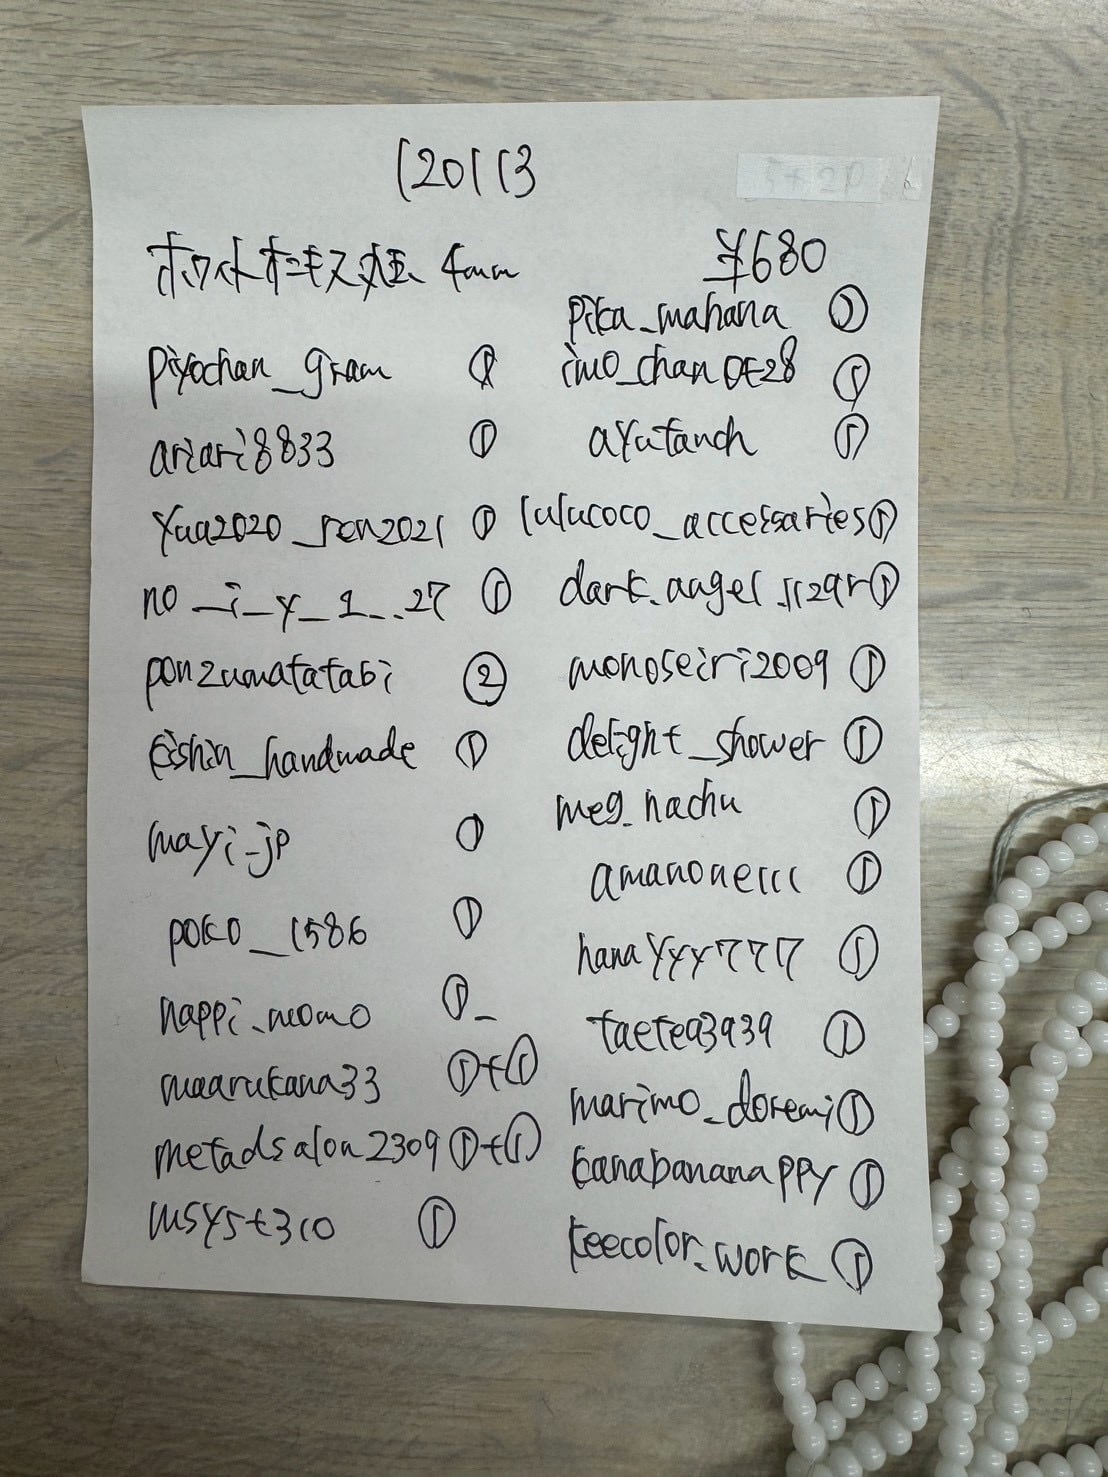 120113
ホワイトオニキス 丸玉 4mm
¥680
piyochan_gram ①
ariari8833 ①
yua2020_ren2021 ①
no_i_y_1_.27 ①
ponzumatatabi ②
eishin_handmade ①
mayi_jp ①
poko_1586 ①
nappi.momo ①
maarukana33 ①+①
metadsalon2309 ①+①
msyst310 ①
pika_mahana ①
imo_chan0528 ①
ayutanch ①
lulucoco_accessaries ①
dark.angel ①
monoseiri2009 ①
delight_shower ①
meg_nachu ①
amanone111 ①
hanayyy777 ①
taetea3939 ①
marimo_doremi ①
kanabananappy ①
keecolor.work ①